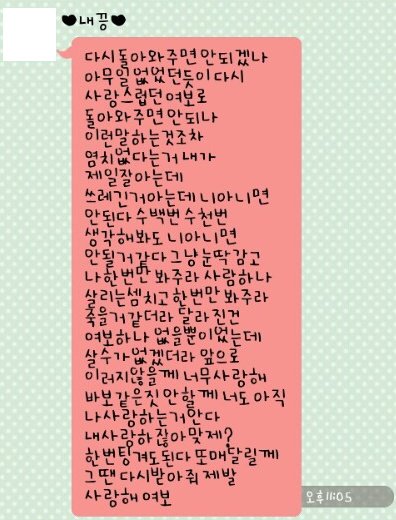 ♥내끙♥
다시돌아와주면안되겠나
아무일없었던듯이다시
사랑스럽던여보로
돌아와주면안되나
이런말하는것조차
염치없다는거내가
제일잘아는데
쓰레긴거아는데니아니면
안된다수백번수천번
생각해봐도니아니면
안될거같다그냥눈딱감고
나한번만봐주라사람하나
살리는셈치고한번만봐주라
죽을거같더라달라진건
여보하나없을뿐이었는데
살수가없겠더라앞으로
이러지않을께너무사랑해
바보같은짓안할께너도아직
나사랑하는거안다
내사랑하잖아맞제?
한번팅겨도된다또매달릴께
그땐다시받아줘제발
사랑해여보
오후11:05